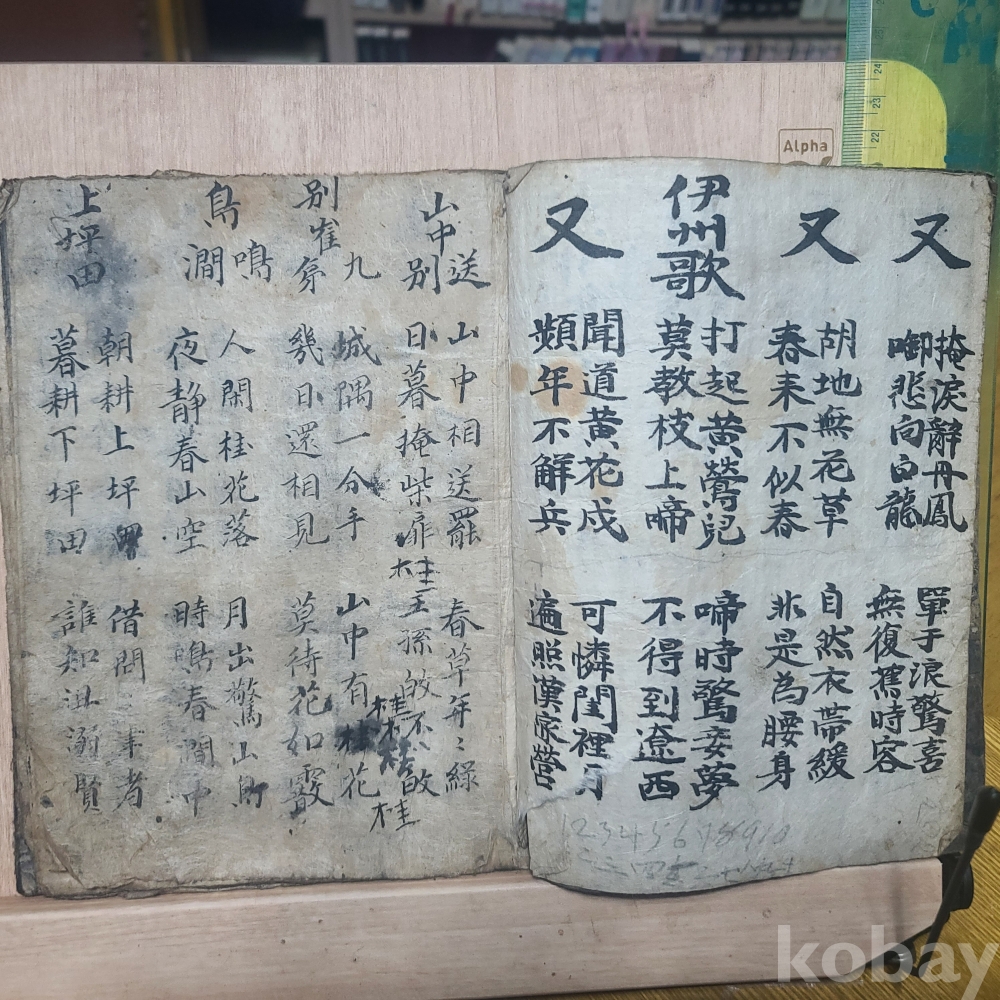 又
掩淚辭丹鳳
啣悲向白龍
單于浪驚喜
無復舊時容
又
胡地無花草
春来不似春
自然衣帶緩
非是為腰身
伊州歌
打起黄鶯兒
莫教枝上啼
啼時驚妾夢
不得到遼西
又
聞道黄花戍
頻年不解兵
可憐閨裡月
遍照漢家營
山中
送別
山中相送罷
日暮掩柴扉
春草年々綠
王孫敀不敀
桂
桂
桂
桂
別崔九弟
城隅一分手
幾日還相見
山中有桂花
莫待花如霰
鳥鳴澗
人閑桂花落
夜静春山空
月出驚山鳥
時鳴春澗中
上坪田
朝耕上坪田
暮耕下坪田
借問 津者
誰知沮溺賢
12345678910
Alpha
24
23
22
kobay